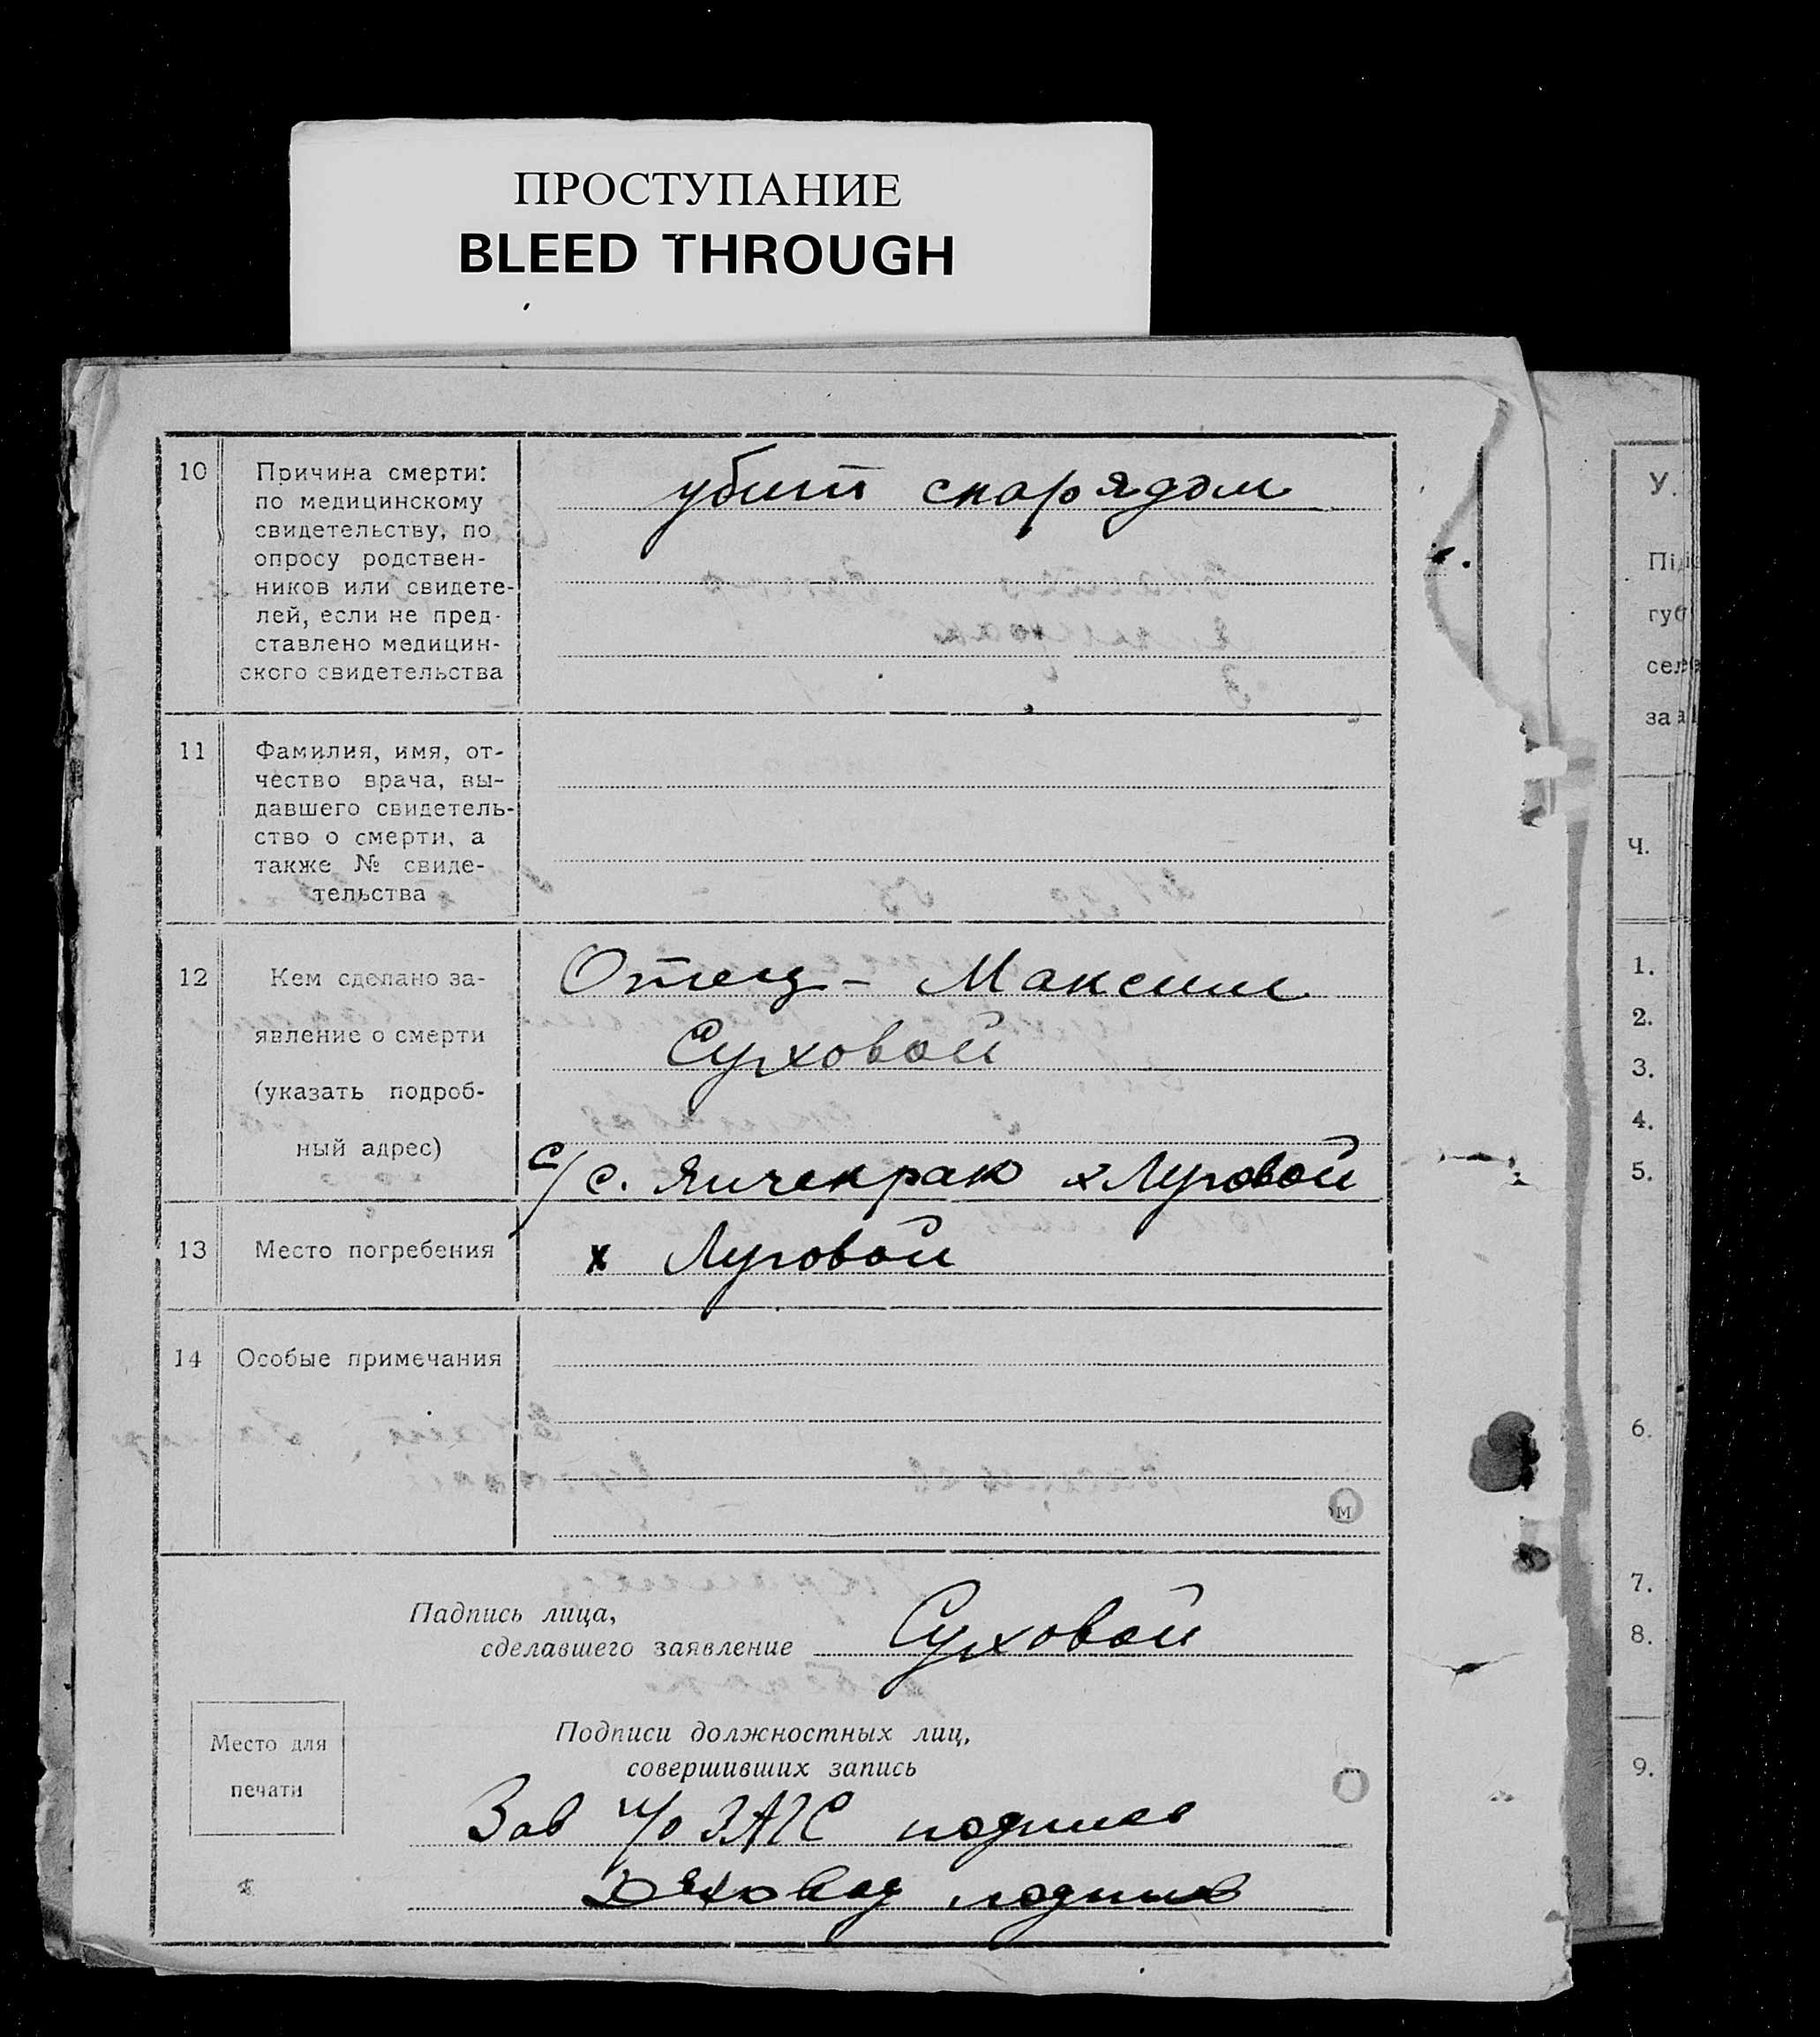 ПРОСТУПАНИЕ
BLEED THROUGH
10
Причина смерти:
по медицинскому
свидетельству, по
опросу родствен-
ников или свидете-
лей, если не пред-
ставлено медицин-
ского свидетельства
убит снарядом
11
Фамилия, имя, от-
чество врача, вы-
давшего свидетель-
ство о смерти, а
также № свиде-
тельства
12
Кем сделано за-
явление о смерти
(указать подроб-
ный адрес)
Отец – Максим
Суховой
с/с. Янчекрак х Луговой
13
Место погребения
х Луговой
14
Особые примечания
Падпись лица,
сделавшего заявление
Суховой
Место для
печати
Подписи должностных лиц,
совершивших запись
Зав ЗАГС подпись
подпись
У.
Під
губ
сел
за
Ч.
1.
2.
3.
4.
5.
6.
7.
8.
9.